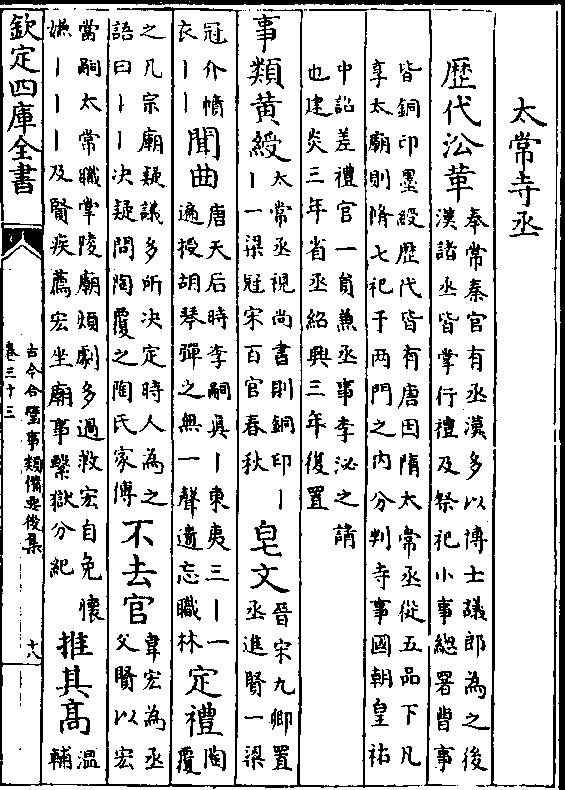 太常寺丞
歴代沿革
奉常秦官有丞漢多以博士議郎為之後
漢諸丞皆掌行禮及祭祀小事緫署曹事
皆銅印墨綬歴代皆有唐因隋太常丞從五品下凡
享太廟則脩七祀于两門之内分判寺事國朝皇祐
中詔差禮官一員兼丞事李泌之請
也建炎三年省丞紹興三年復置
事類黄綬
太常丞視尚書則銅印丨
丨一梁冠宋百官春秋
皂文
晉宋九卿置
丞進賢一梁
冠介幘
衣丨丨
聞曲
唐天后時李嗣真丨東夷三丨一
遍授胡琴彈之無一聲遺忘職林
定禮
陶
覆
之凡宗廟疑議多所决定時人為之
語曰丨丨决疑問陶覆之陶氏家傳
不去官
韋宏為丞
父賢以宏
當嗣太常職掌陵廟煩劇多過敕宏自免懷
嫌丨丨丨及賢疾薦宏坐廟事繫獄分紀
推其高
温
輔
欽定四庫全書
古今合璧事類備要後集
卷三十三
十八